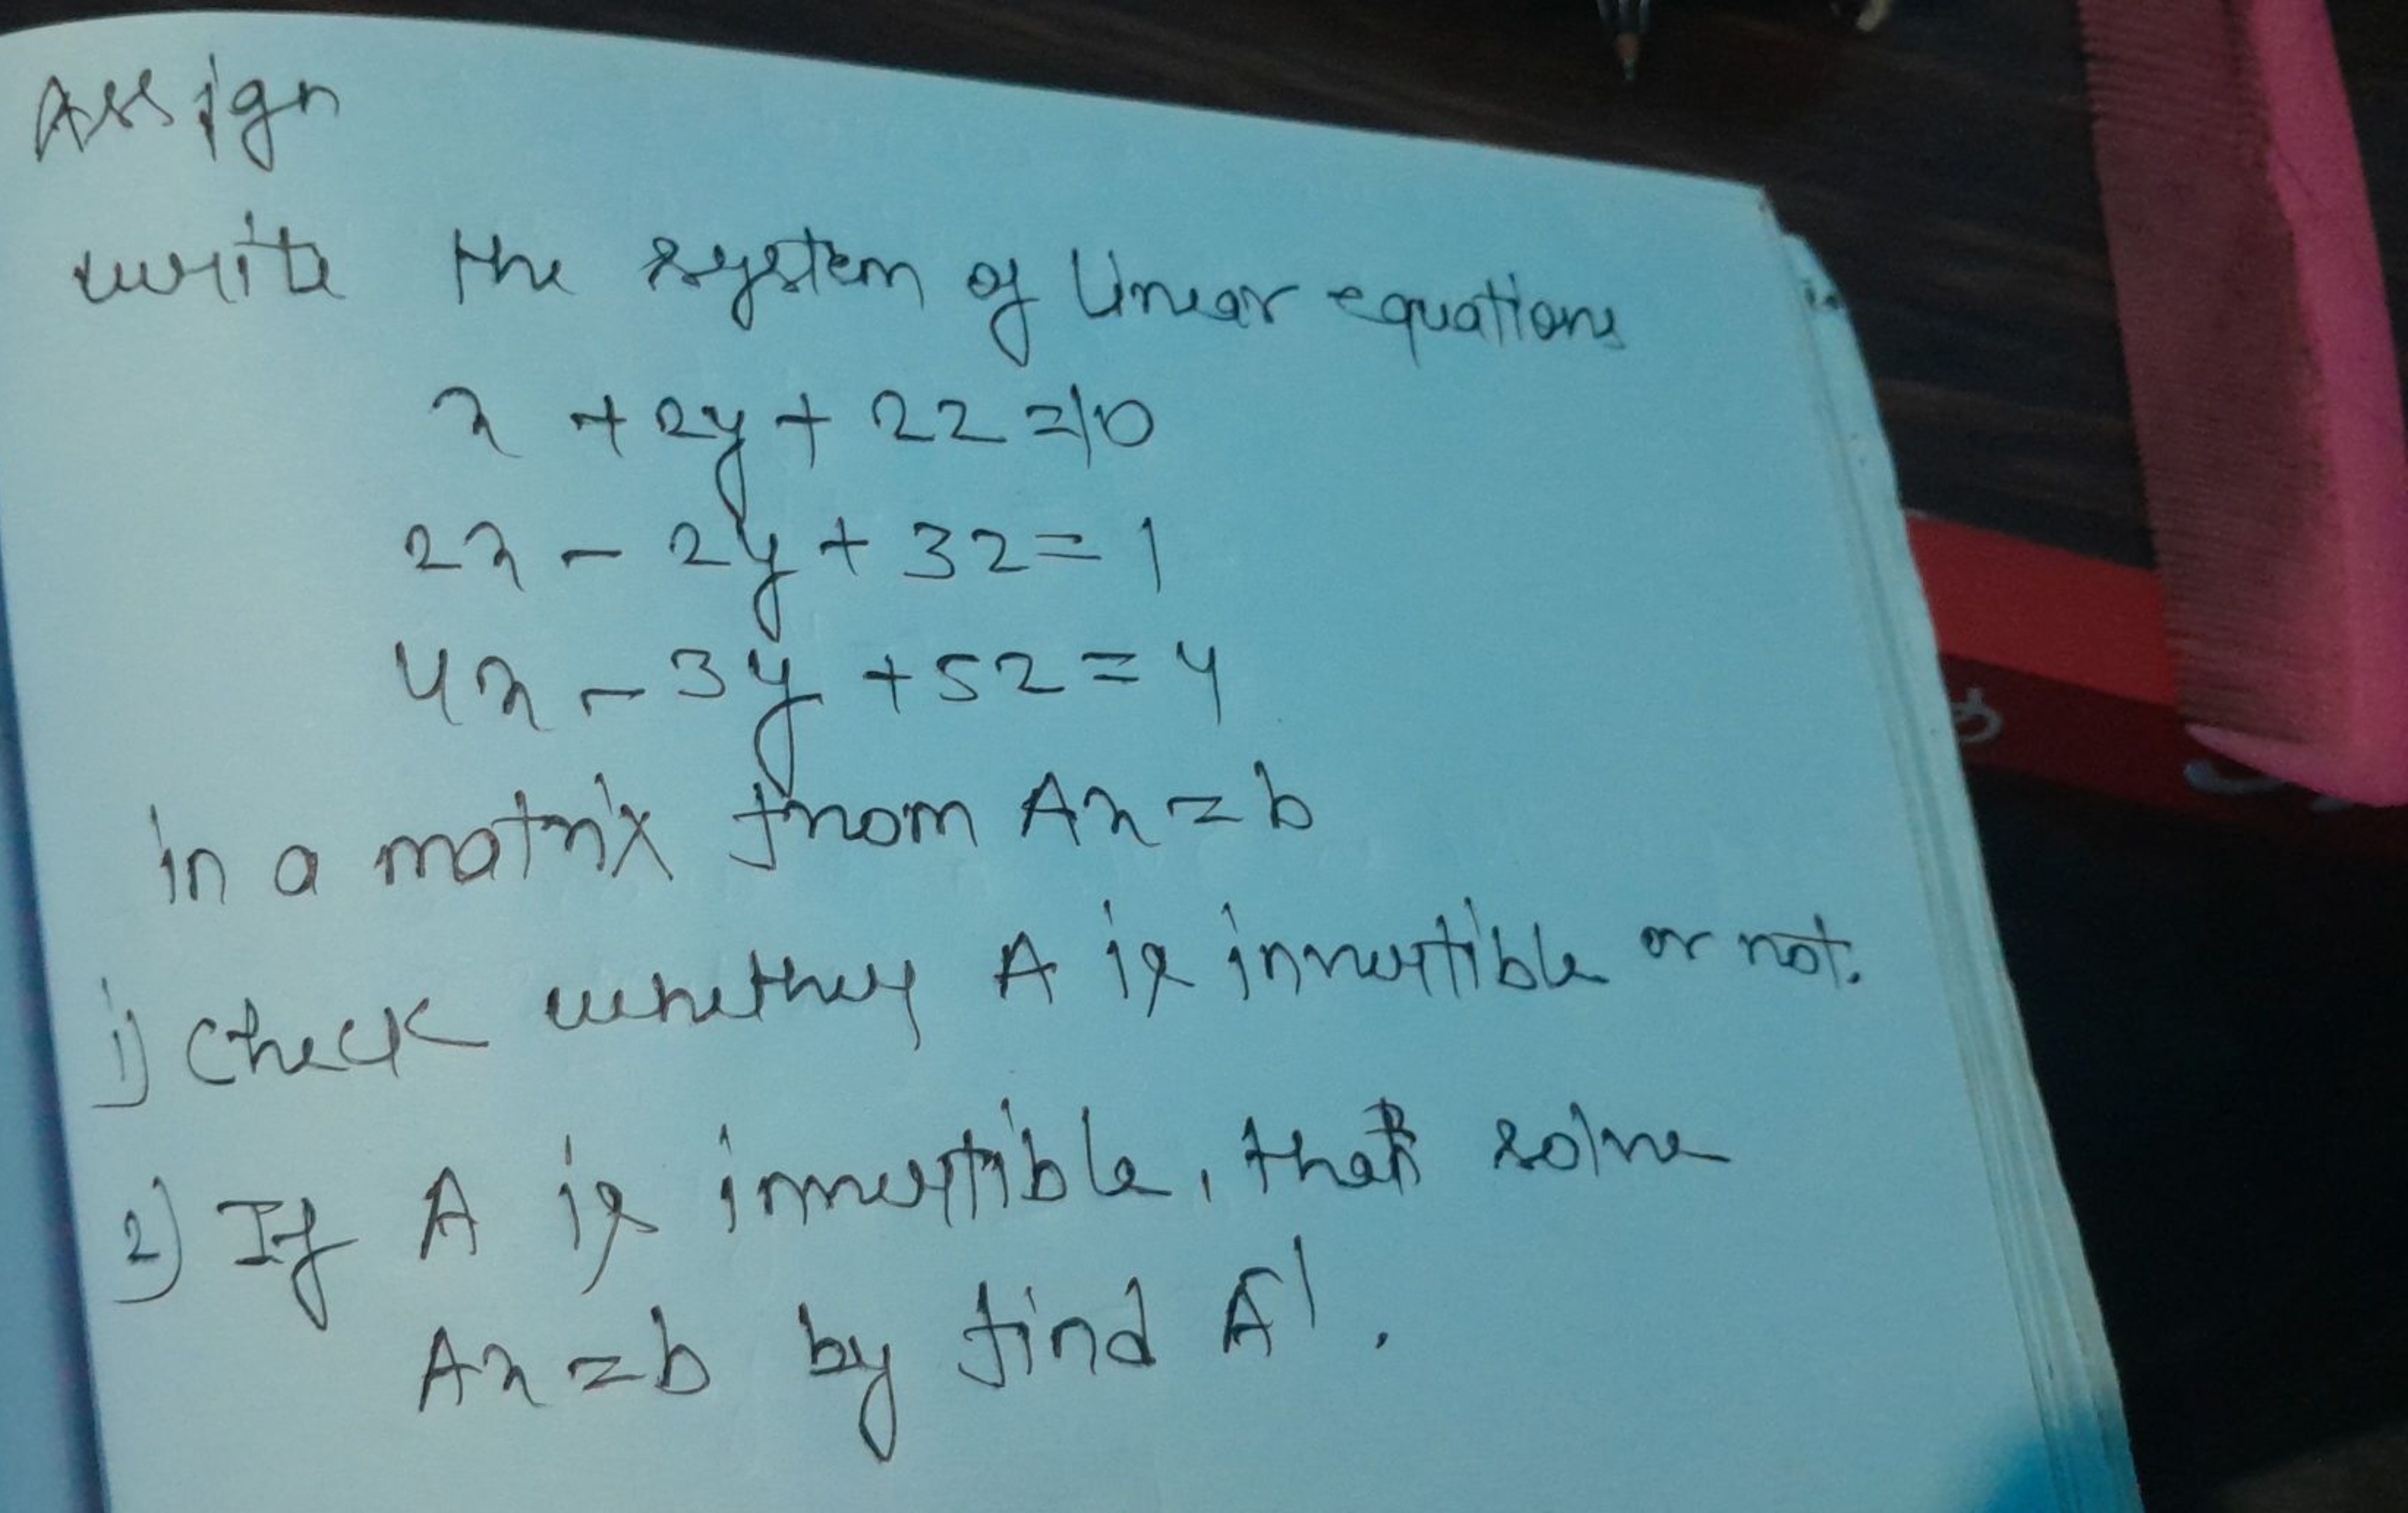 Assign
write the system of linear equations
x + 2y + 2z = 10
2x - 2y + 3z = 1
4x - 3y + 5z = 4
in a matrix from Ax = b
1) Check whether A is invertible or not.
2) If A is invertible, that solve
Ax = b by find A⁻¹.